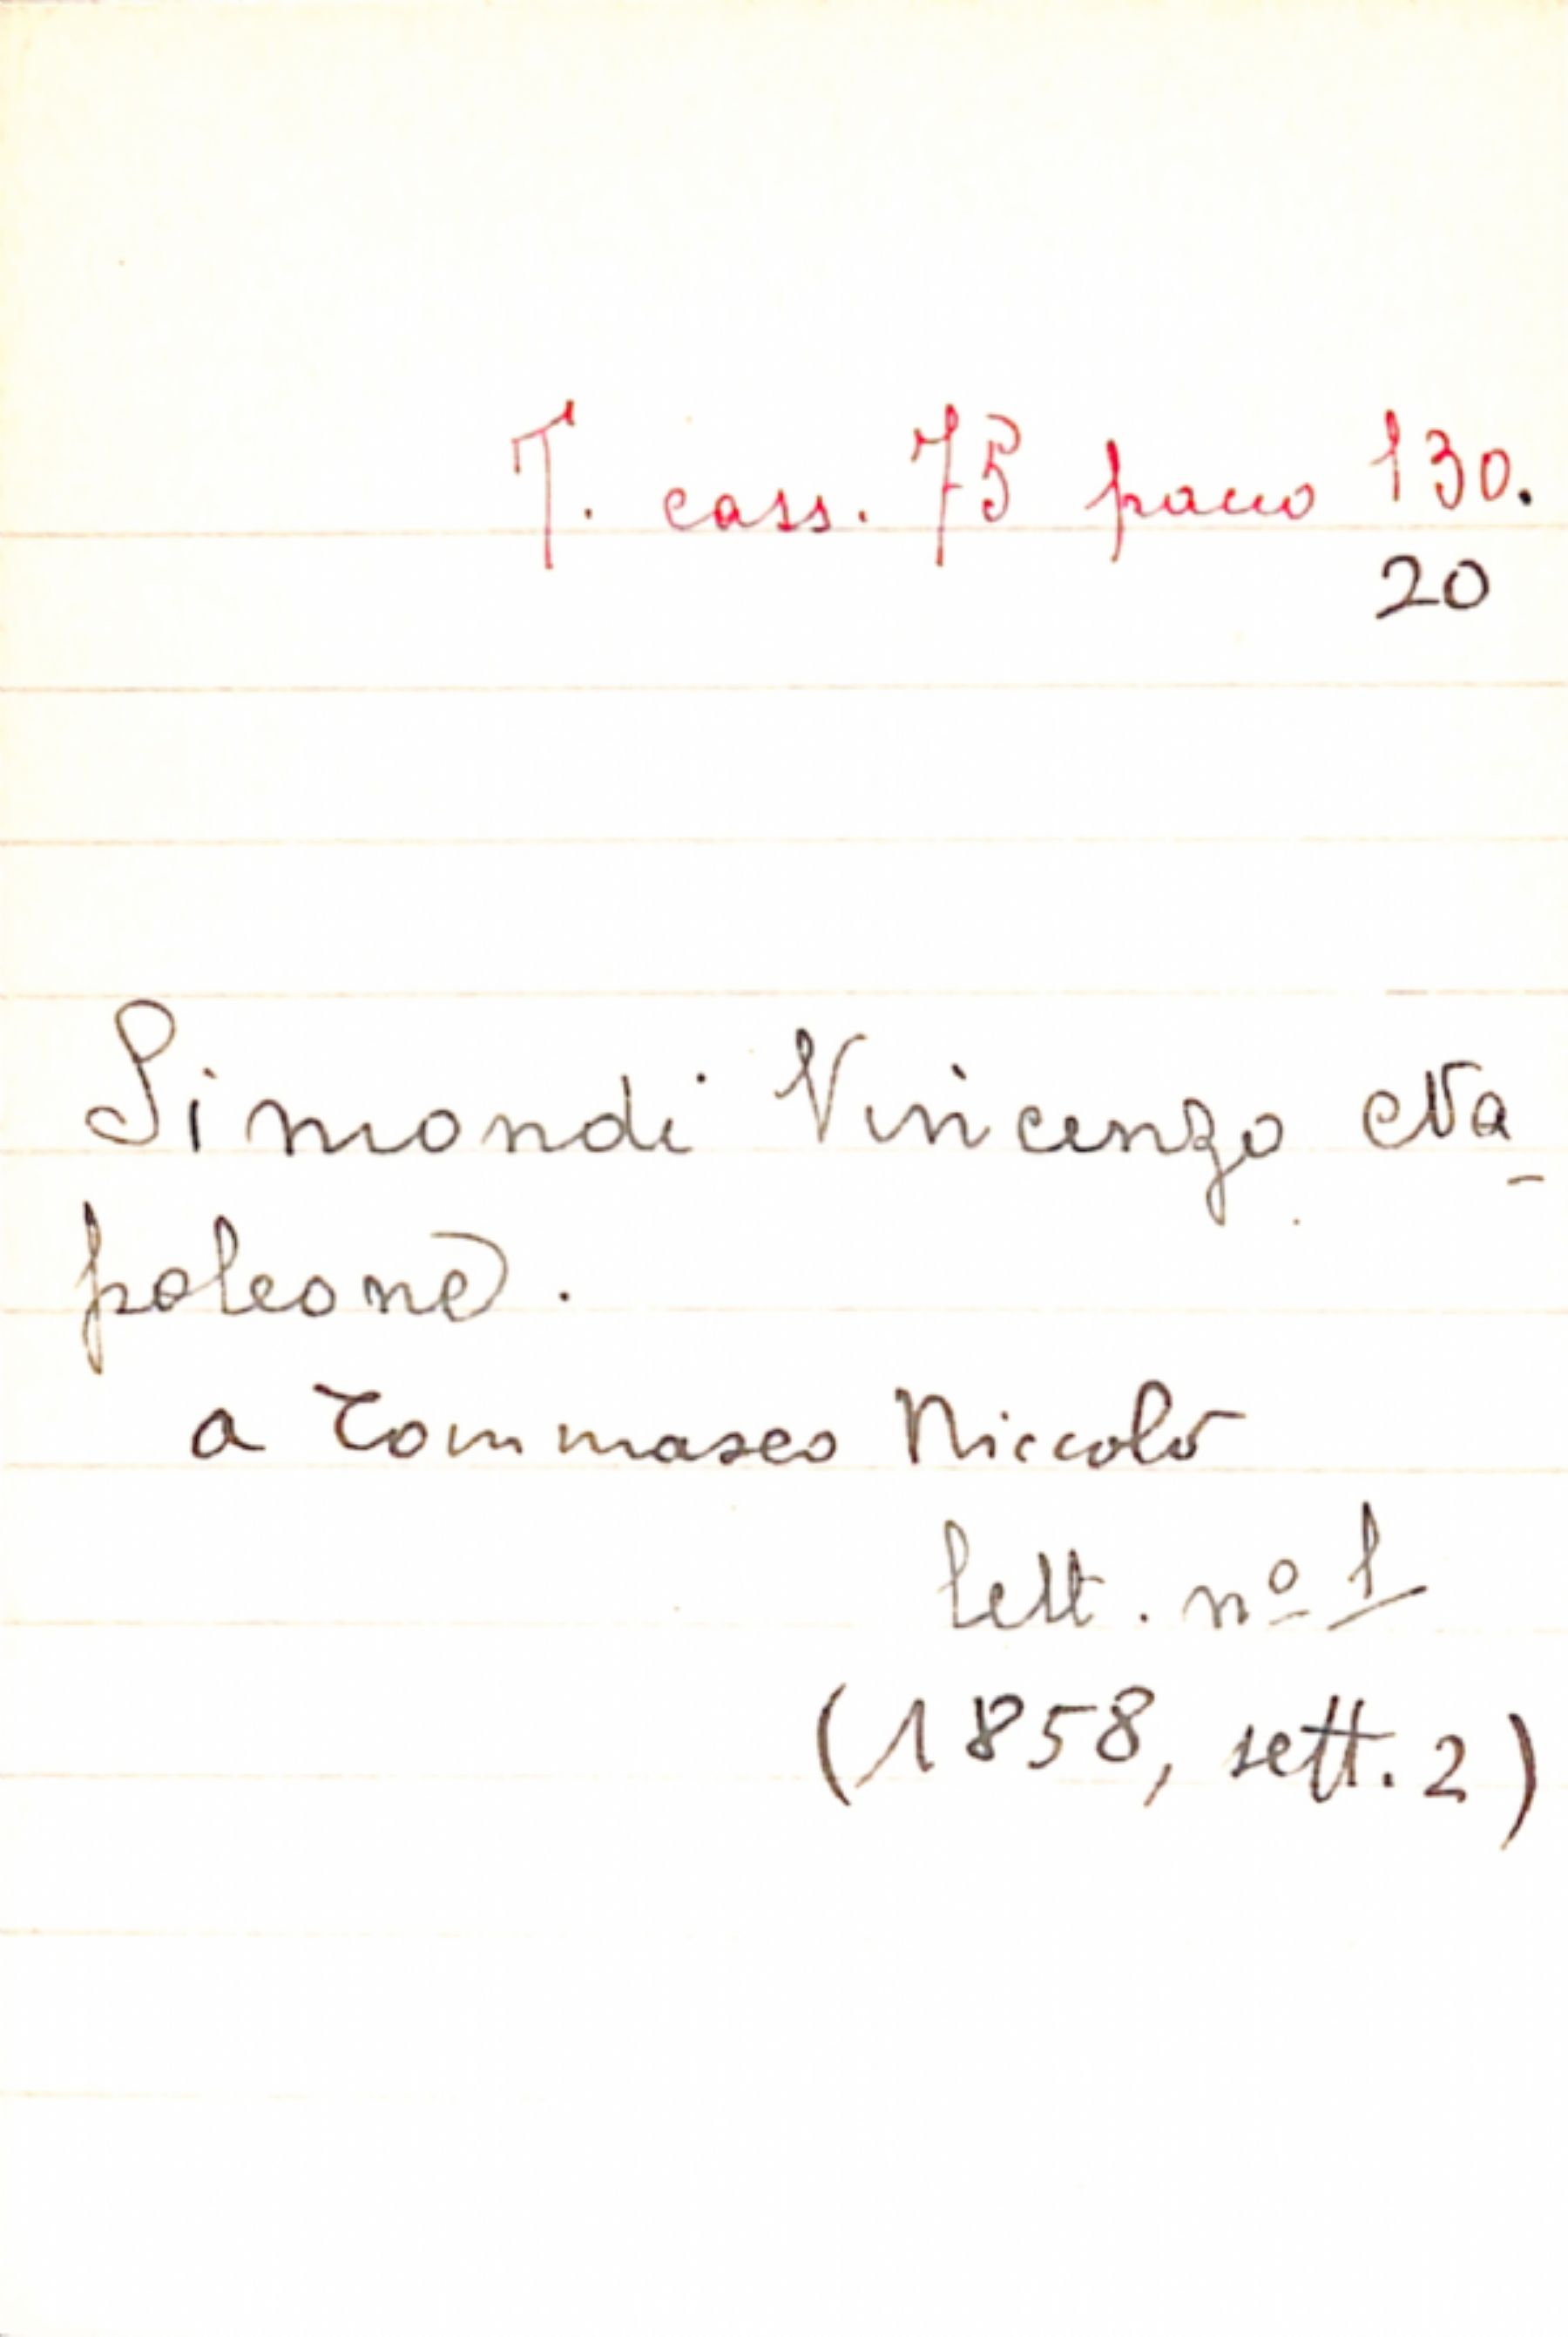 T. cass. 75 pacco 130.
20
Simondi Vincenzo Na-
poleone.
a Tommaseo Niccolò
lett. nº 1
(1858, sett. 2)